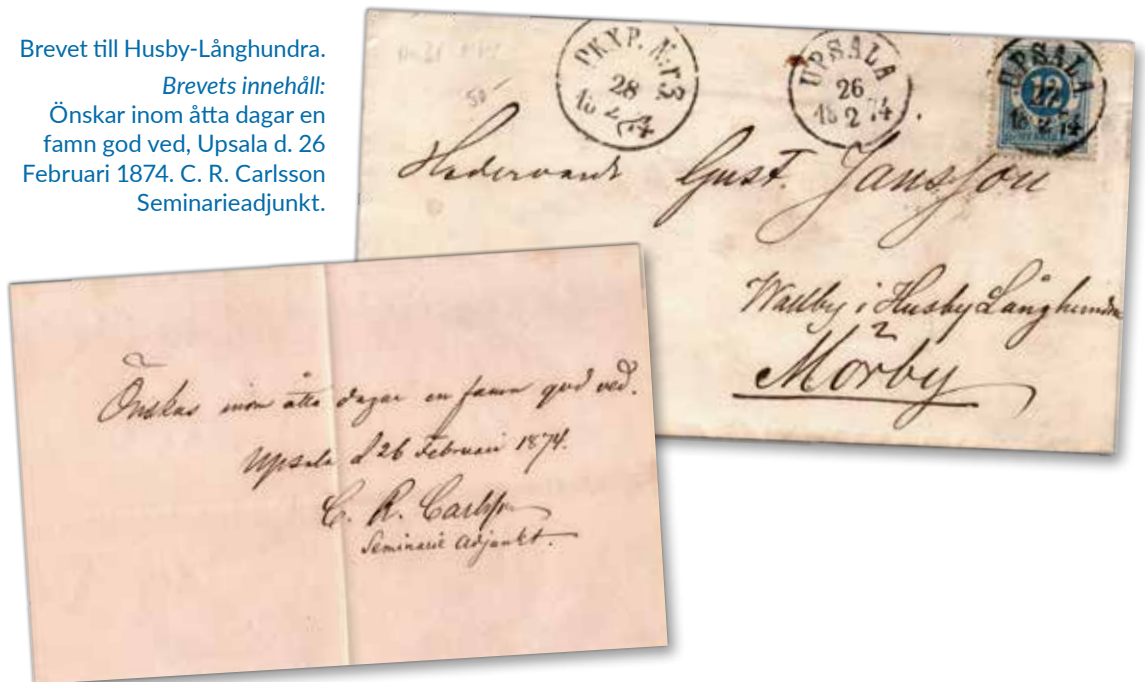 Brevet till Husby-Långhundra.
Brevets innehåll:
Önskar inom åtta dagar en
famn god ved, Upsala d. 26
Februari 1874. C. R. Carlsson
Seminarieadjunkt.
PKXP. N:r 3
28
18 2 74
UPSALA
26
18 2 74
UPSALA
18 2 74
50
Gust. Jansson
Wallby i Husby Långhundra
Mörby
Önskas inom åtta dagar en famn god ved.
Upsala d 26 Februari 1874.
C. R. Carlsson
Seminarie Adjunkt.